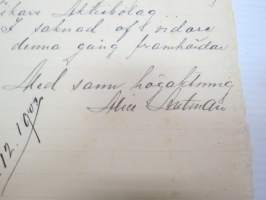 Aktiebolag
I saknad af vidare
denna gång framhärdar
Med sann högaktning
Alice
.12.1903